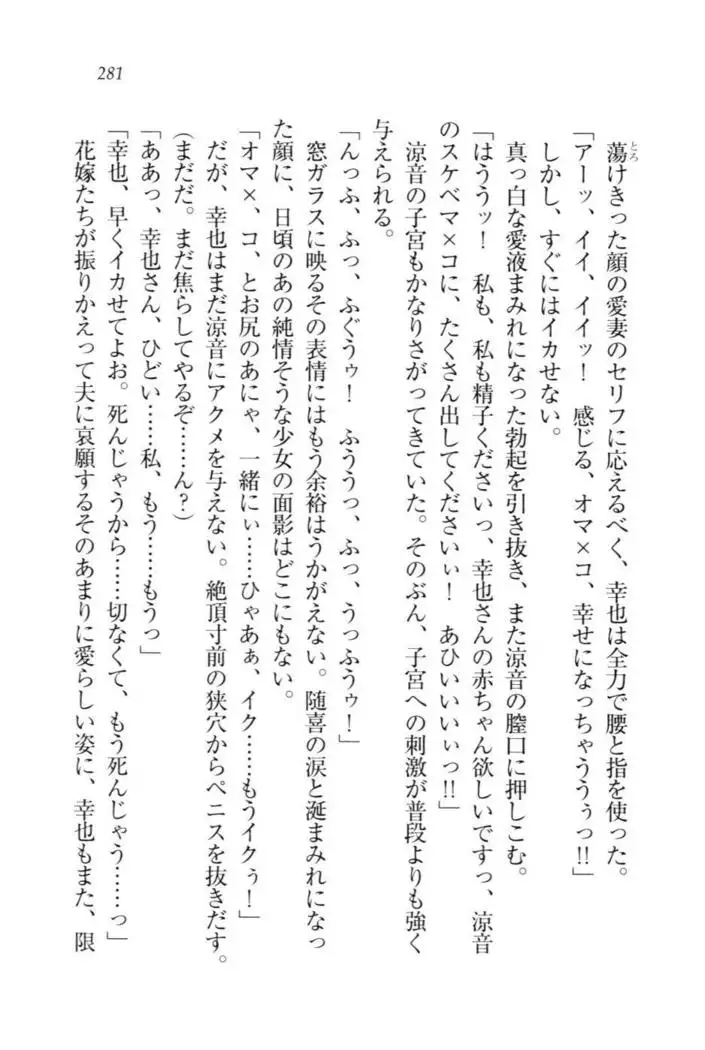 281
蕩けきった顔の愛妻のセリフに応えるべく、幸也は全力で腰と指を使った。
とろ
「アーッ、イイ、イイッ！　感じる、オマ×コ、幸せになっちゃううぅっ!!」
しかし、すぐにはイカせない。
真っ白な愛液まみれになった勃起を引き抜き、また涼音の膣口に押しこむ。
「はううッ！　私も、私も精子くださいっ、幸也さんの赤ちゃん欲しいですっ、涼音
のスケベマ×コに、たくさん出してくださいぃ！　あひいいいぃっ!!」
涼音の子宮もかなりさがってきていた。そのぶん、子宮への刺激が普段よりも強く
与えられる。
「んっふ、ふっ、ふぐうゥ！　ふううっ、ふっ、うっふうゥ！」
窓ガラスに映るその表情にはもう余裕はうかがえない。随喜の涙と涎まみれになっ
た顔に、日頃のあの純情そうな少女の面影はどこにもない。
「オマ×、コ、とお尻のあにゃ、一緒にぃ……ひゃあぁ、イク……もうイクぅ！」
だが、幸也はまだ涼音にアクメを与えない。絶頂寸前の狭穴からペニスを抜きだす。
(まだだ。まだ焦らしてやるぞ……ん？)
「ああっ、幸也さん、ひどい……私、もう……もうっ」
「幸也、早くイカせてよお。死んじゃうから……切なくて、もう死んじゃう……っ」
花嫁たちが振りかえって夫に哀願するそのあまりに愛らしい姿に、幸也もまた、限